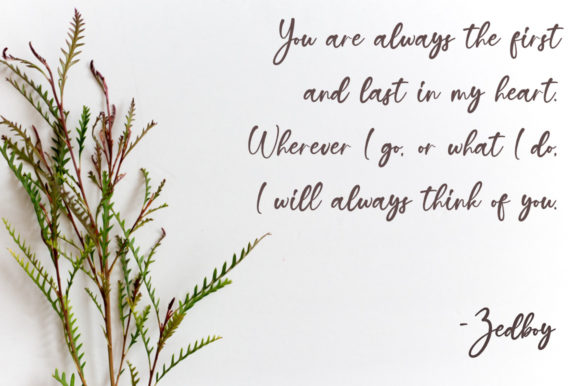 You are always the first
and last in my heart.
Wherever I go, or what I do,
I will always think of you.
- Zedboy